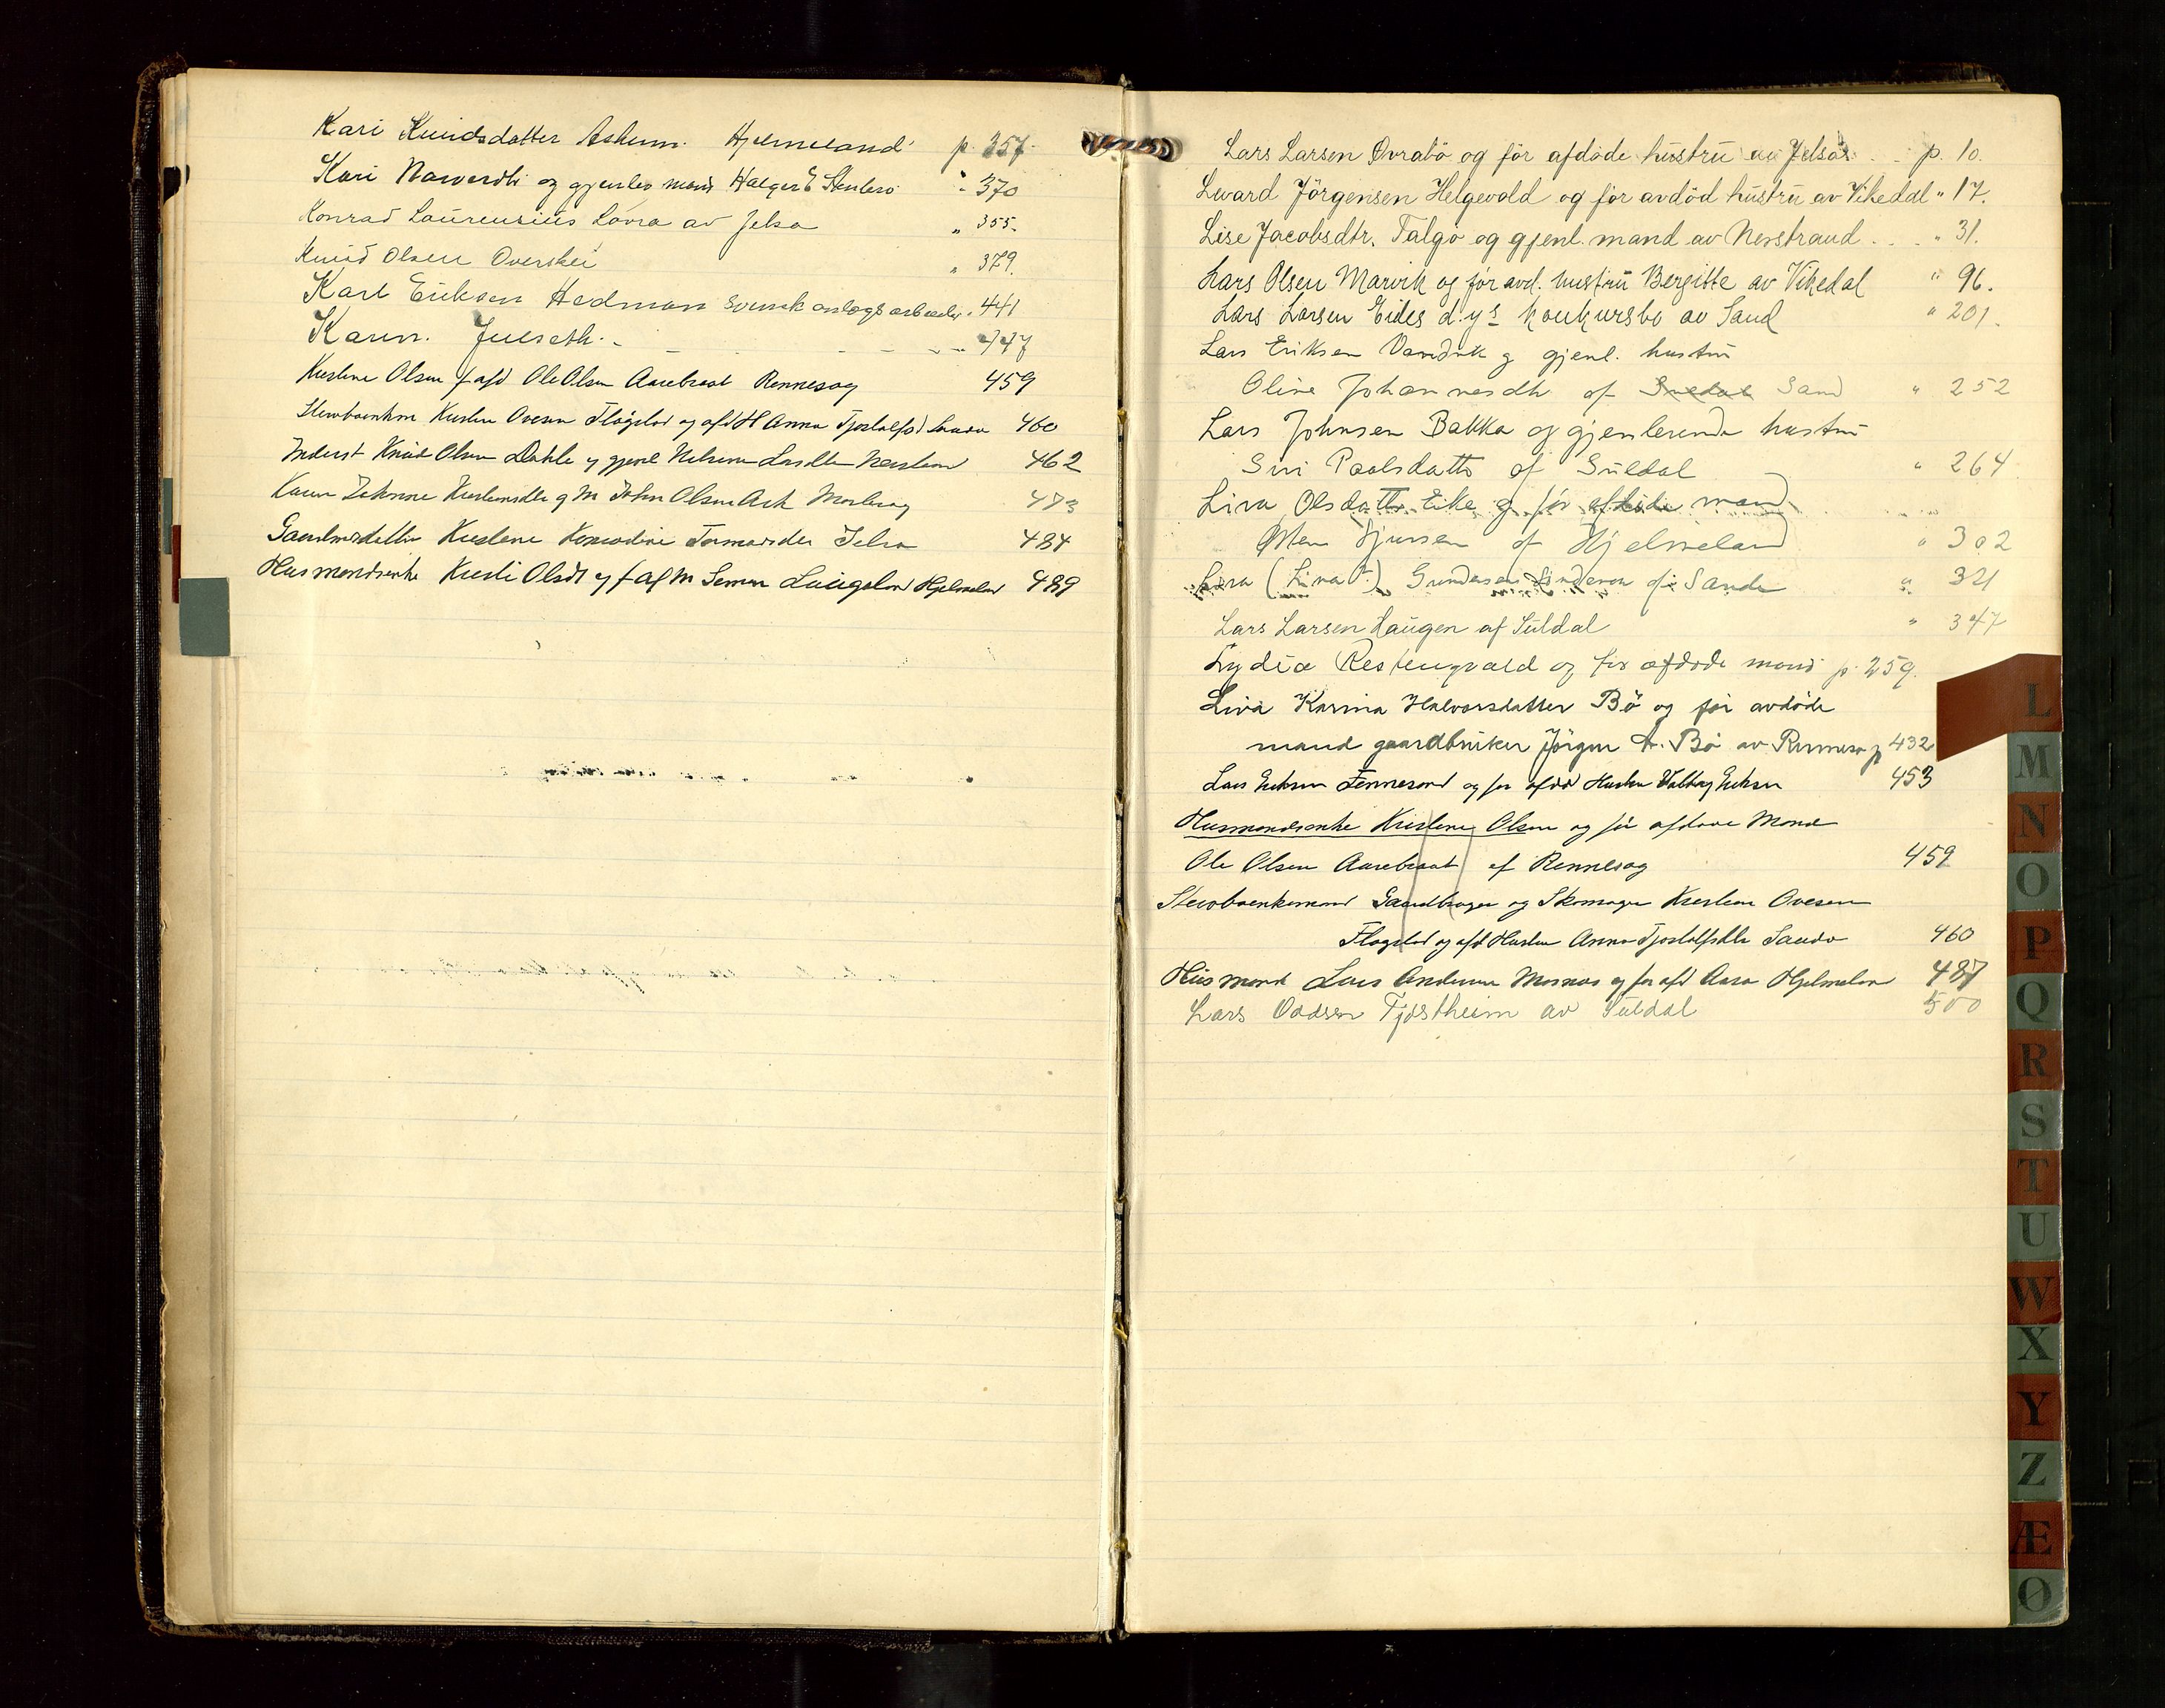 Kari Knudsdatter Askvm. Hjelmeland p. 357.
Kari og gjenlev mand Holger E " 370
Konrad Laurensius Lovra av Jelsa " 355.
Knud Olsen Overskei " 379.
Karl Eriksen Hedman svensk anlægsarbeider " 441
Karen. Julseth. - - - - 447
Kristene Olsen f afd Ole Olsen Aarebrot Rennesøy 459
Kristen Ovesen Flogstad og afd H Anna Tjostolfsd Sauda 460
Inderst Knud Olsen Dahle og gjenl 462
Karen og M John Olsen Ask Mosterøy 473
Kristene Jelsa 484
Husmandsenke Kirsti Olsdt og f af M Hjelmeland 489
Lars Larsen Øvrabö og för afdöde hustru av Jelsa . . p. 10.
Sivard Jörgensen Helgevold og för avdöd hustru av Vikedal " 17.
Lise Jacobsdtr. Talgö og gjenl. mand av Nerstrand . . " 31.
Lars Olsen Marvik og för avd. hustru Bergitte av Vikedal " 96.
Lars Larsen Eides d.y.s konkursbo av Sand " 201.
Lars Eriksen Vandvik og gjenl. hustru
Oline Johannesdtr af Suldal Sand " 252
Lars Johnsen Bakka og gjenlevende hustru
Siri Paalsdatter af Suldal " 264
Liva Olsdatter Eike og för afdöde mand
Østen Sjursen af Hjelmeland " 302
Liva (Lina?) Gundersen af Sande " 321
Lars Larsen Haugen af Suldal " 347
Lydia Restengvald og for afdøde mand p. 259.
Liva Karina Halvorsdatter Bö og för avdöde
mand gaardbruker Jörgen A. Bö av Rennesø p 432
Lars Eriksen og for afdd Hustru Valborg Eriksen 453
Husmandsenke Kristene Olsen og för afdøde Mand
Ole Olsen Aarebrot af Rennesøy 459
Gaardbruger og Skomager Kristen Ovesen
Flogstad og afd Hustru Anna Tjostolfsdtr Sauda 460
Husmand Lars Andersen Mosnes og for afd Hjelmeland 487
Lars Oddsen Tjøstheim av Suldal 500
L
M
N
O
P
Q
R
S
T
U
W
X
Y
Z
Æ
Ø